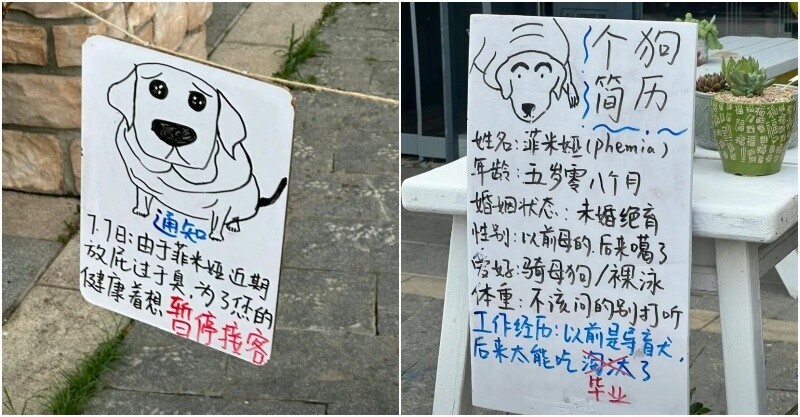 通知
7.7日:由于菲米娅近期
放屁过于臭 为了您的
健康着想 暂停接客
个狗
简历
姓名:菲米娅(phemia)
年龄:五岁零八个月
婚姻状态:未婚绝育
性别:以前母的.后来噶了
爱好:骑母狗/裸泳
体重:不该问的别打听
工作经历:以前是导盲犬,
后来太能吃 淘汰了
毕业